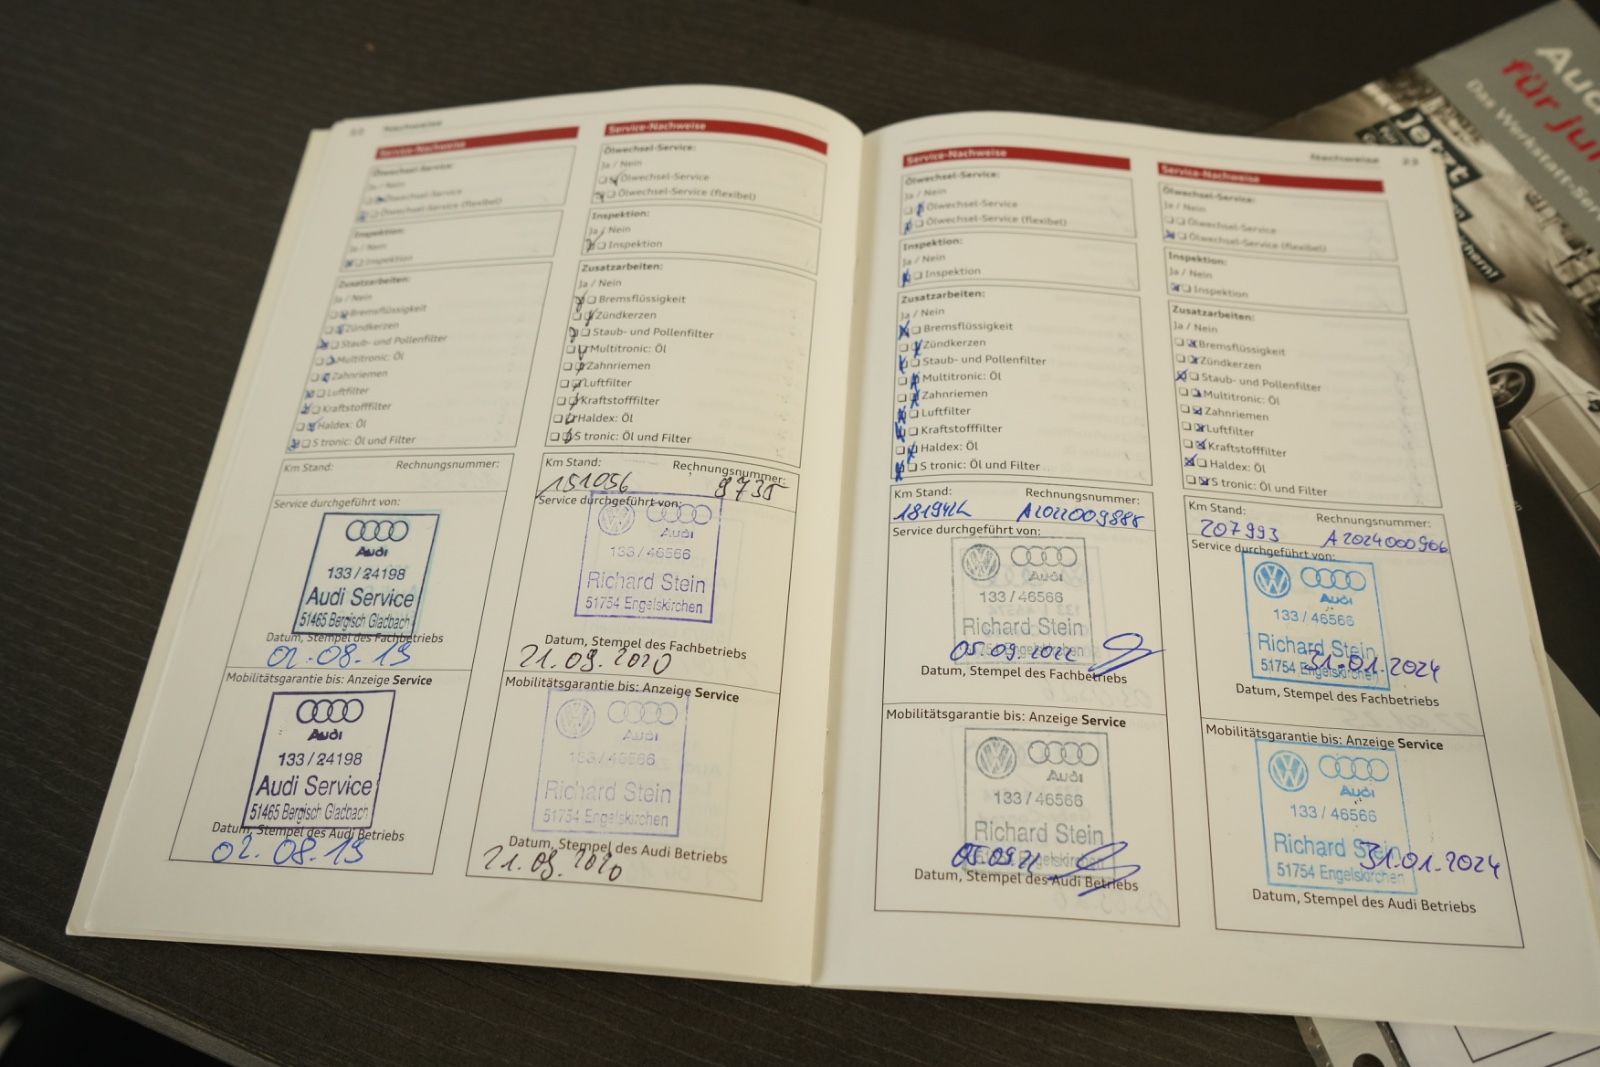 22 Nachweise
Service-Nachweise
Ölwechsel-Service:
Ja / Nein
Ölwechsel-Service
Ölwechsel-Service (flexibel)
Inspektion:
Ja / Nein
Inspektion
Zusatzarbeiten:
Ja / Nein
Bremsflüssigkeit
Zündkerzen
Staub- und Pollenfilter
Multitronic: Öl
Zahnriemen
Luftfilter
Kraftstofffilter
Haldex: Öl
S tronic: Öl und Filter
Km Stand: Rechnungsnummer:
Service durchgeführt von:
Audi
133 / 24198
Audi Service
51465 Bergisch Gladbach
Datum, Stempel des Fachbetriebs
02.08.19
Mobilitätsgarantie bis: Anzeige Service
Audi
133 / 24198
Audi Service
51465 Bergisch Gladbach
Datum, Stempel des Audi Betriebs
02.08.19
Service-Nachweise
Ölwechsel-Service:
Ja / Nein
Ölwechsel-Service
Ölwechsel-Service (flexibel)
Inspektion:
Ja / Nein
Inspektion
Zusatzarbeiten:
Ja / Nein
Bremsflüssigkeit
Zündkerzen
Staub- und Pollenfilter
Multitronic: Öl
Zahnriemen
Luftfilter
Kraftstofffilter
Haldex: Öl
S tronic: Öl und Filter
Km Stand: Rechnungsnummer:
151056 9735
Service durchgeführt von:
Audi
133 / 46566
Richard Stein
51754 Engelskirchen
Datum, Stempel des Fachbetriebs
21.09.2020
Mobilitätsgarantie bis: Anzeige Service
Audi
133 / 46566
Richard Stein
51754 Engelskirchen
Datum, Stempel des Audi Betriebs
21.09.2020
Nachweise 23
Service-Nachweise
Ölwechsel-Service:
Ja / Nein
Ölwechsel-Service
Ölwechsel-Service (flexibel)
Inspektion:
Ja / Nein
Inspektion
Zusatzarbeiten:
Ja / Nein
Bremsflüssigkeit
Zündkerzen
Staub- und Pollenfilter
Multitronic: Öl
Zahnriemen
Luftfilter
Kraftstofffilter
Haldex: Öl
S tronic: Öl und Filter
Km Stand: Rechnungsnummer:
A2022009888
Service durchgeführt von:
Audi
133 / 46566
Richard Stein
51754 Engelskirchen
05.09.2022
Datum, Stempel des Fachbetriebs
Mobilitätsgarantie bis: Anzeige Service
Audi
133 / 46566
Richard Stein
51754 Engelskirchen
Datum, Stempel des Audi Betriebs
Service-Nachweise
Ölwechsel-Service:
Ja / Nein
Ölwechsel-Service
Ölwechsel-Service (flexibel)
Inspektion:
Ja / Nein
Inspektion
Zusatzarbeiten:
Ja / Nein
Bremsflüssigkeit
Zündkerzen
Staub- und Pollenfilter
Multitronic: Öl
Zahnriemen
Luftfilter
Kraftstofffilter
Haldex: Öl
S tronic: Öl und Filter
Km Stand: Rechnungsnummer:
207993 A2024000906
Service durchgeführt von:
Audi
133 / 46566
Richard Stein
51754 Engelskirchen
31.01.2024
Datum, Stempel des Fachbetriebs
Mobilitätsgarantie bis: Anzeige Service
Audi
133 / 46566
Richard Stein
51754 Engelskirchen
31.01.2024
Datum, Stempel des Audi Betriebs
für
Das Werkstatt-
Jetzt